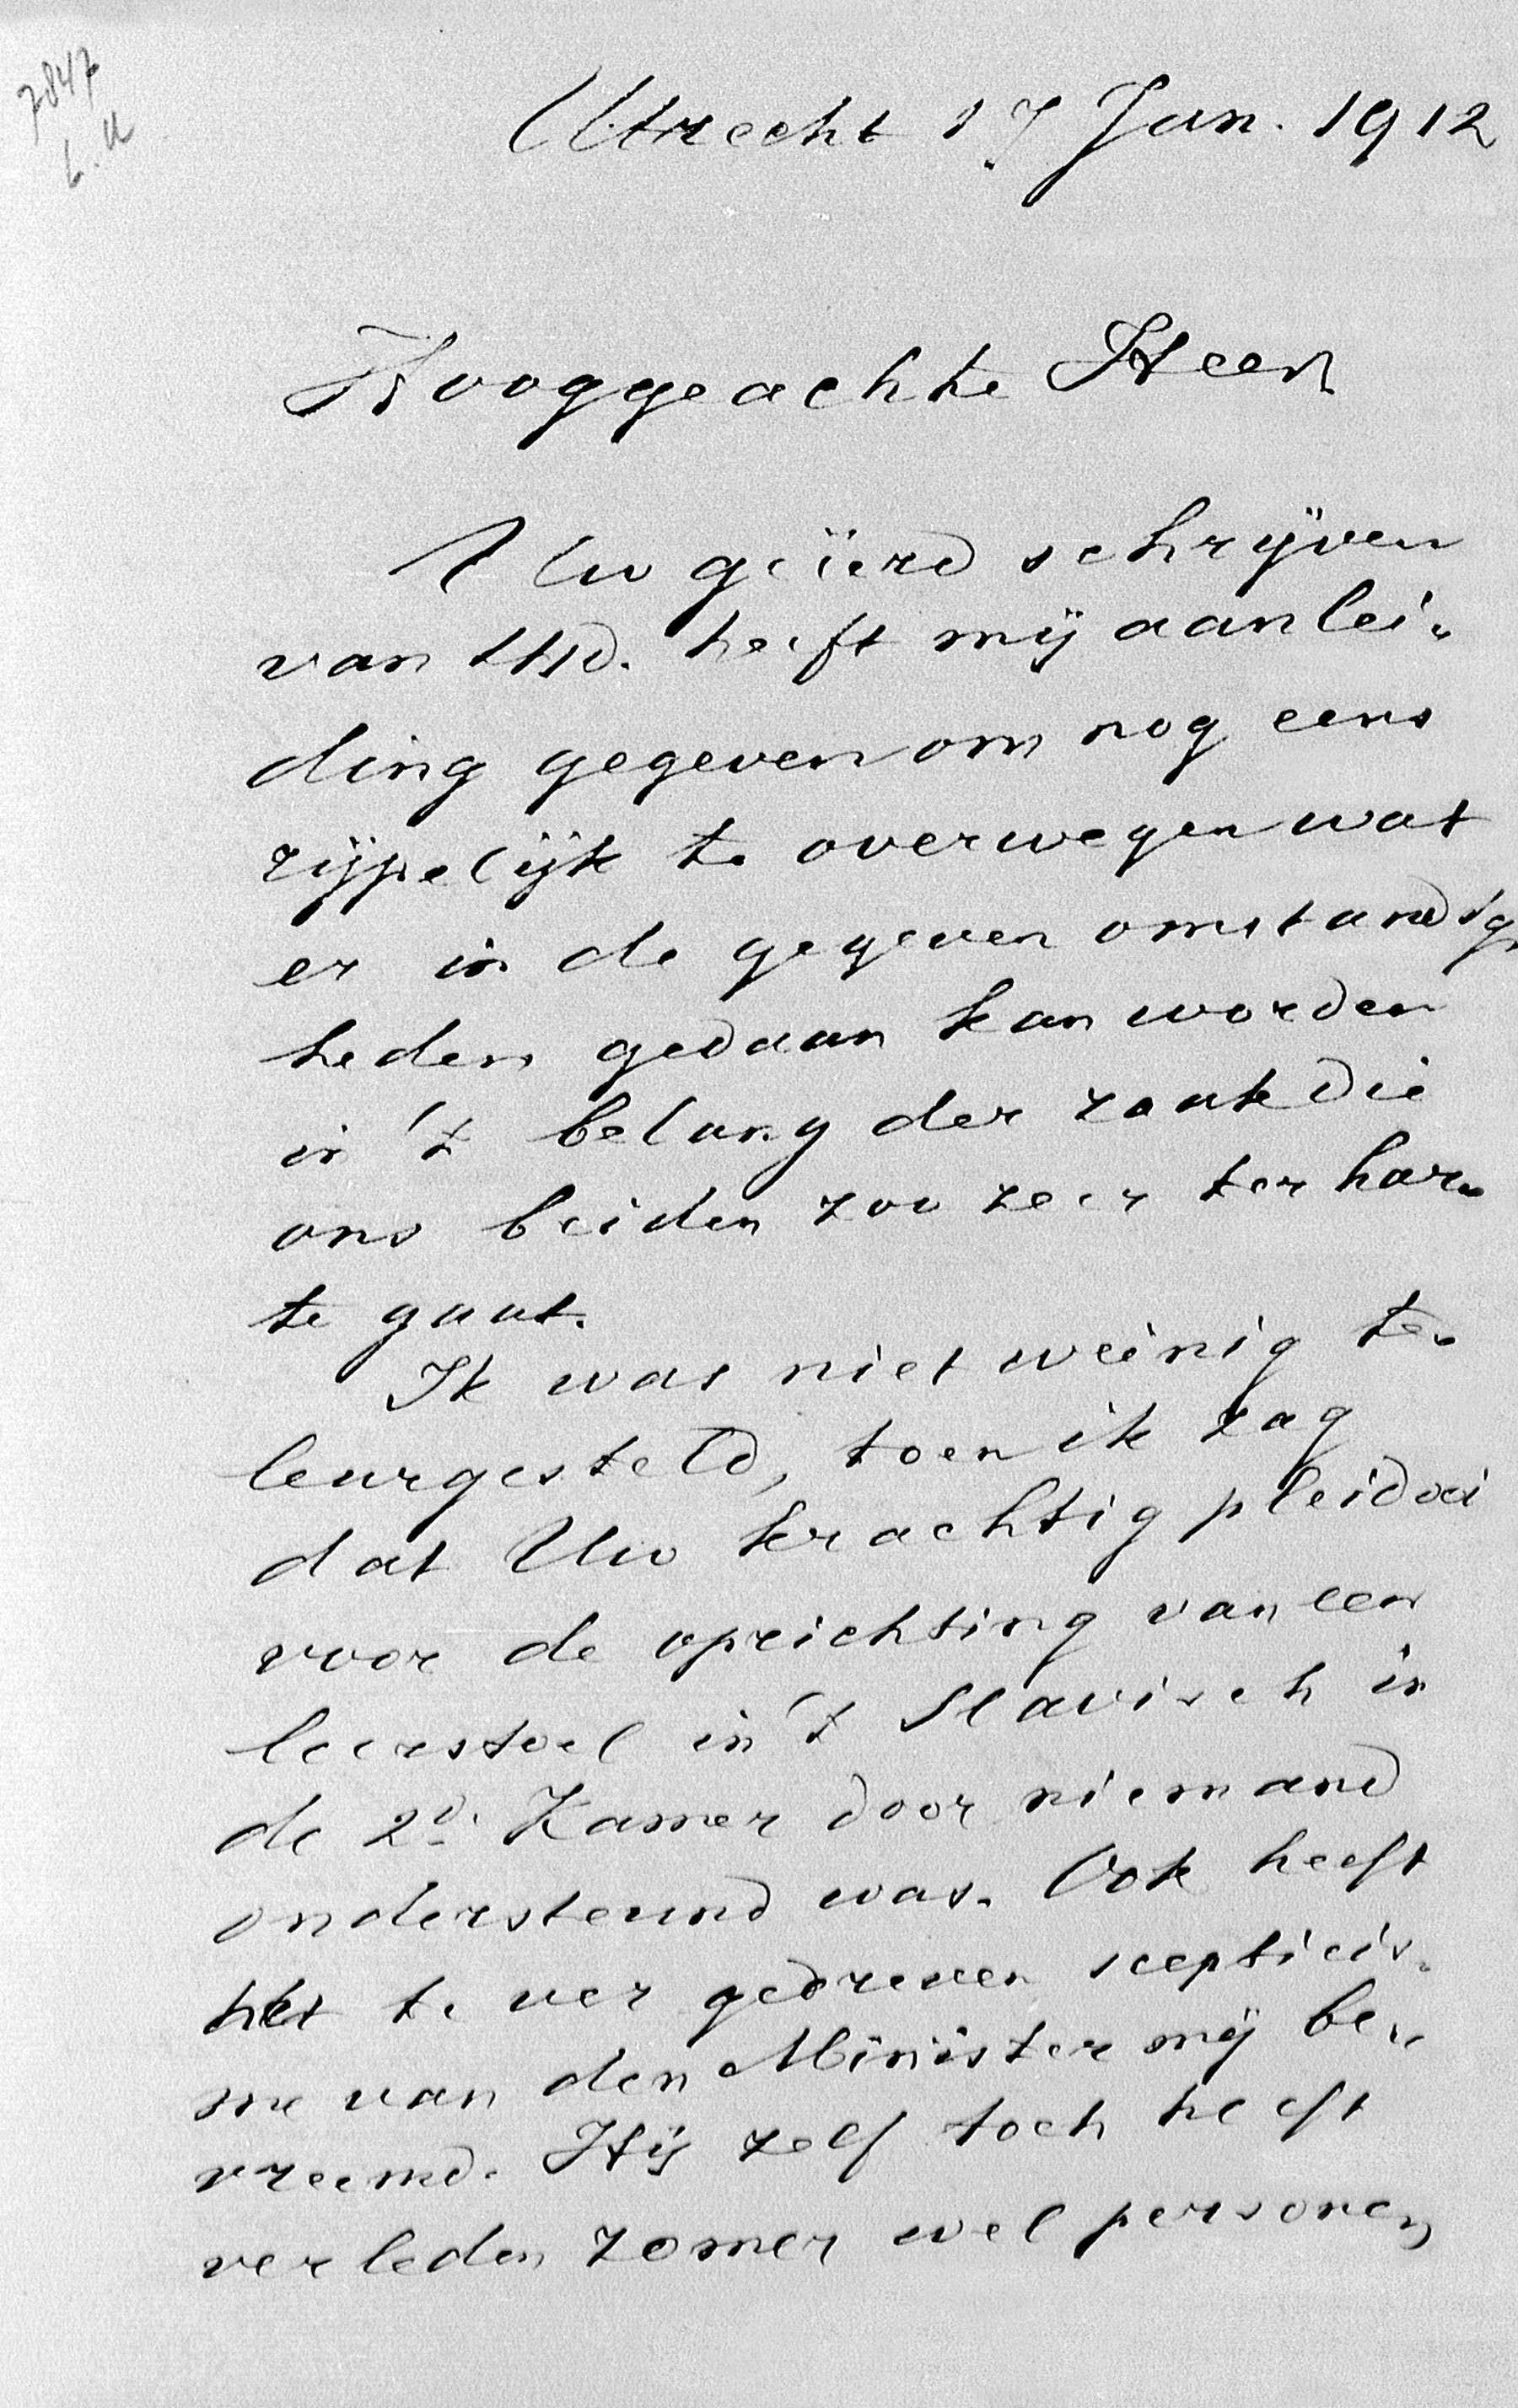 7847
L.U
Utrecht 17 Jan. 1912
Hooggeachte Heer
Uw geëerd schrijven
van 14/1 d. heeft mij aanlei-
ding gegeven om nog eens
rijpelijk te overwegen wat
er in de gegeven omstandig-
heden gedaan kan worden
in 't belang der zaak die
ons beiden zoo zeer ter har-
te gaat.
Ik was niet weinig te-
leurgesteld, toen ik zag
dat Uw krachtig pleidooi
voor de oprichting van een
leerstoel in 't Slavisch in
de 2de Kamer door niemand
ondersteund was. Ook heeft
het te ver gedreven scepticis-
me van den Minister mij be-
vreemd. Hij zelf toch heeft
verleden zomer wel personen